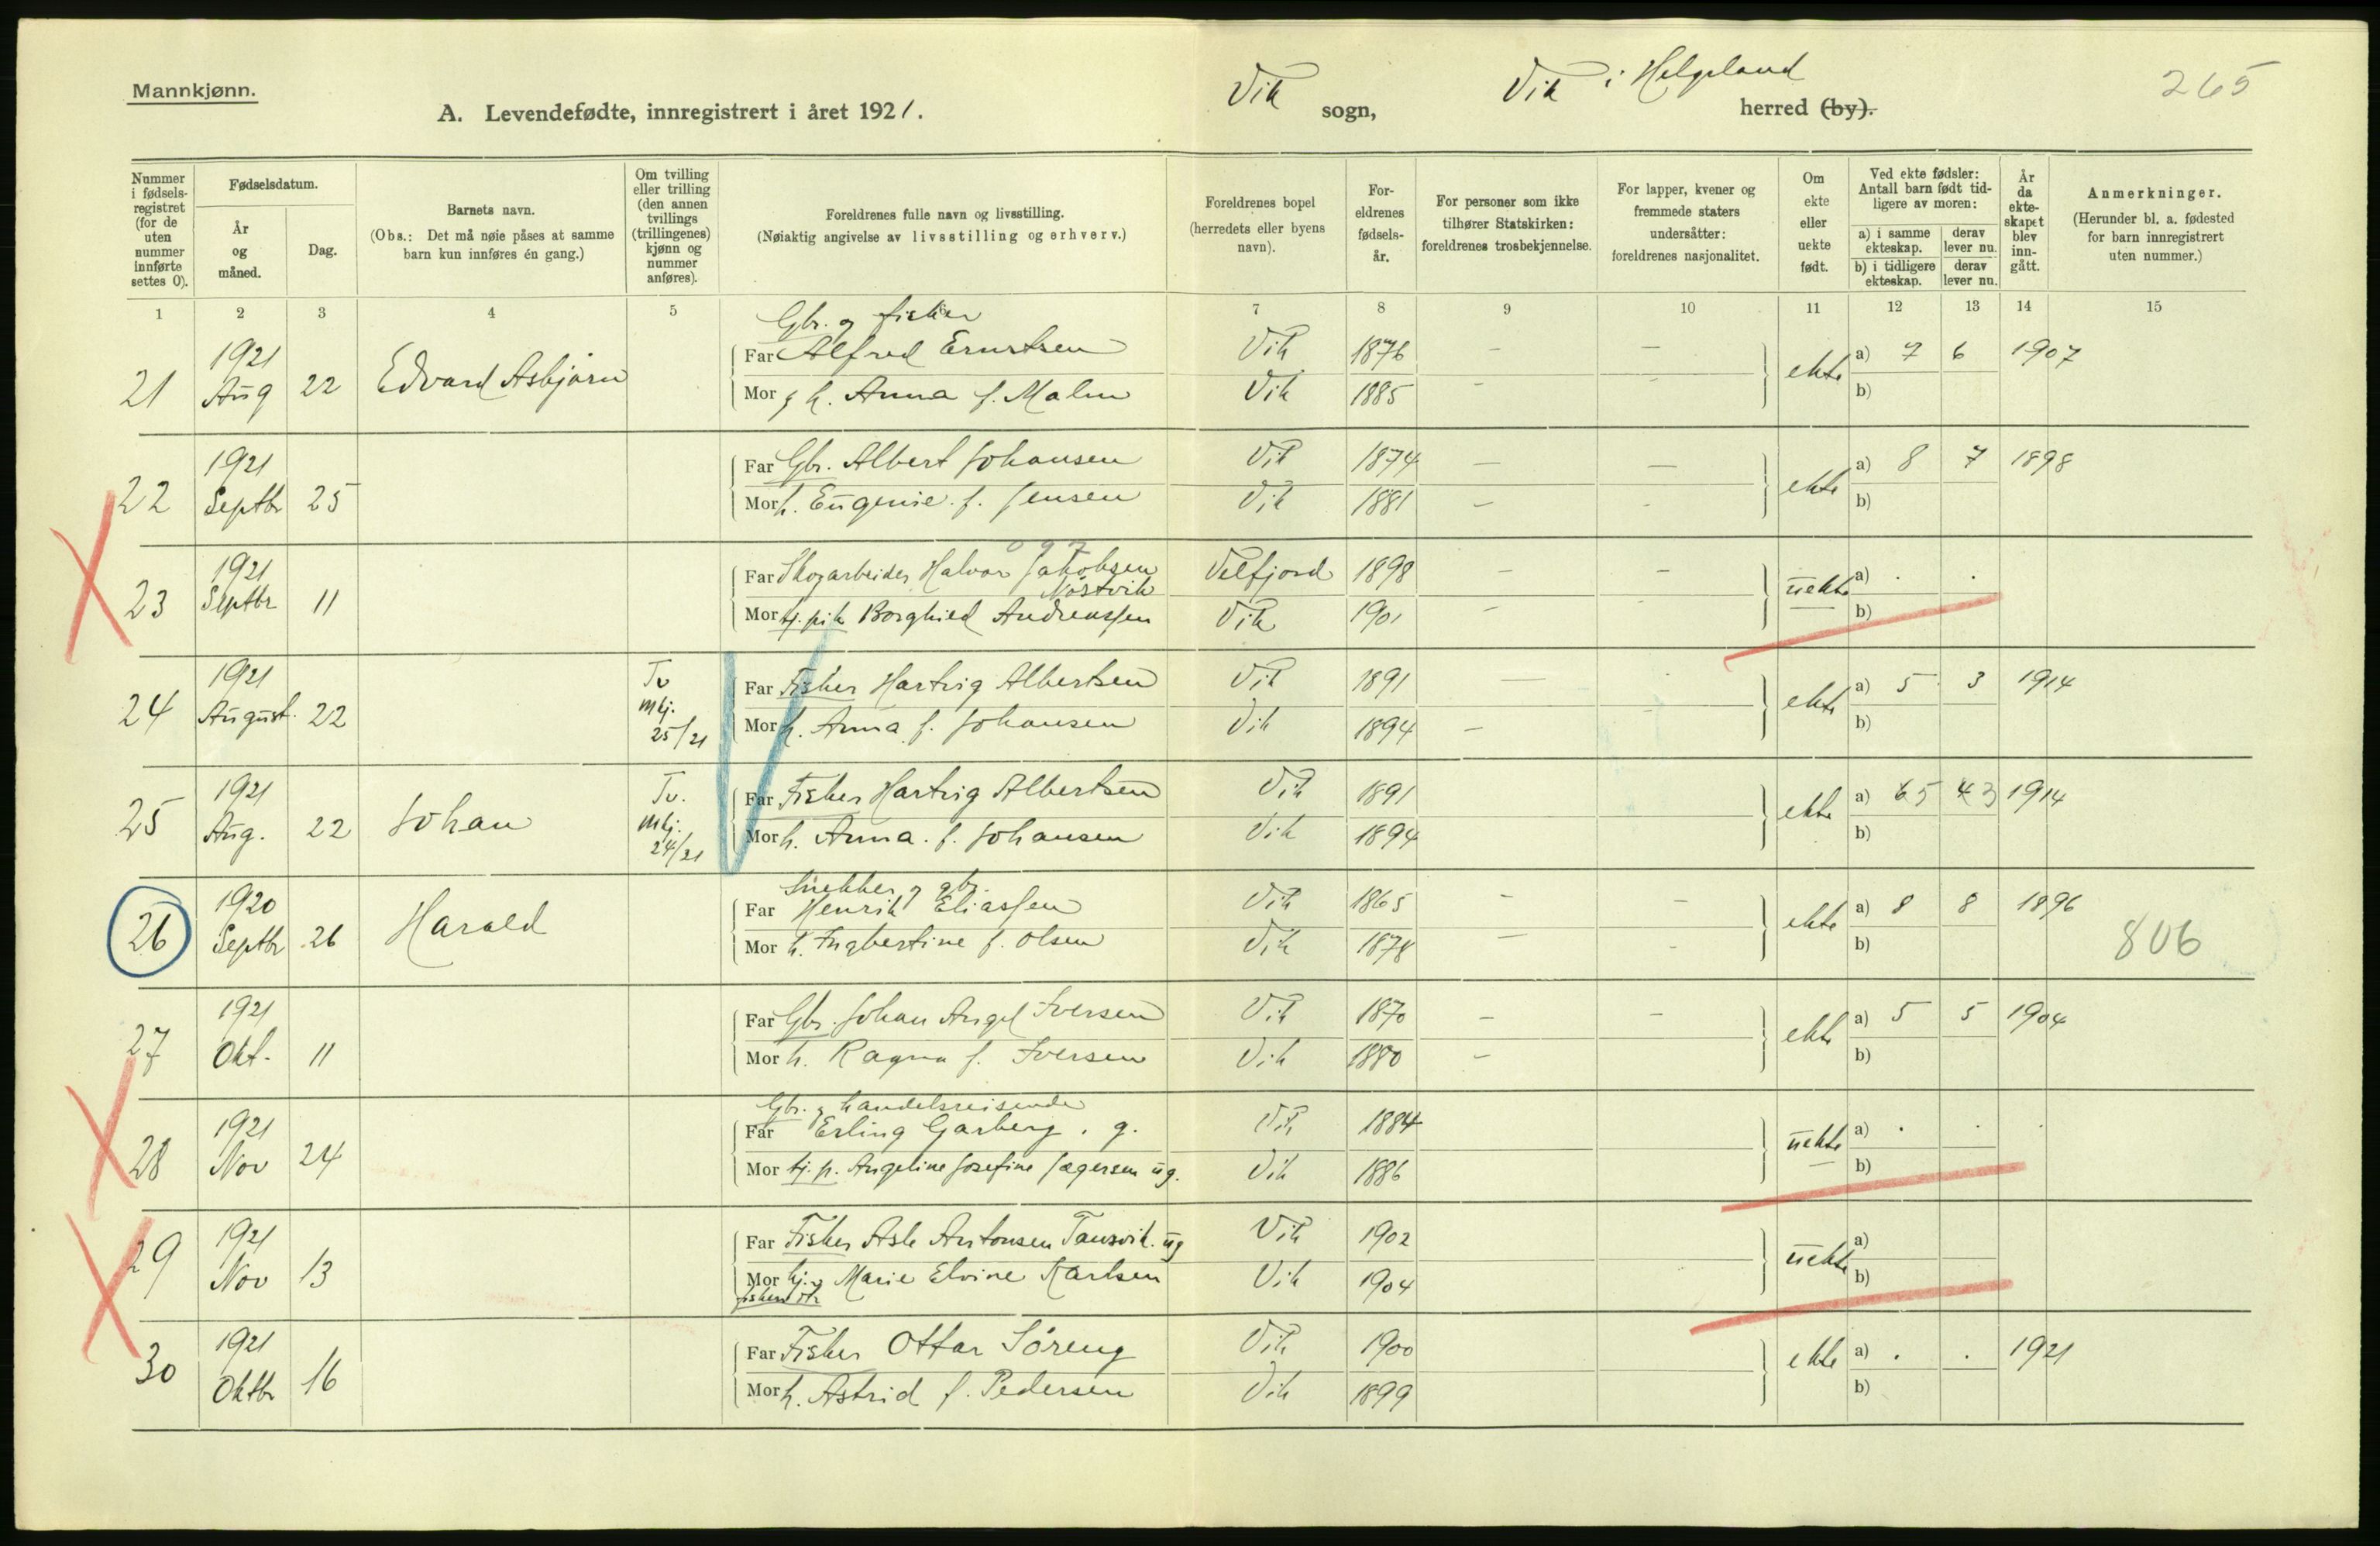 Mannkjønn.
A. Levendefødte, innregistrert i året 1921.
Vik sogn, Vik i Helgeland herred (by).
265
Nummer i fødsels-registret (for de uten nummer innførte settes 0).
Fødselsdatum.
År og måned.
Dag.
Barnets navn.
(Obs.: Det må nøie påses at samme barn kun innføres én gang.)
Om tvilling eller trilling (den annen tvillings (trillingenes) kjønn og nummer anføres).
Foreldrenes fulle navn og livsstilling.
(Nøiaktig angivelse av livsstilling og erhverv.)
Foreldrenes bopel (herredets eller byens navn).
For-eldrenes fødsels-år.
For personer som ikke tilhører Statskirken: foreldrenes trosbekjennelse.
For lapper, kvener og fremmede staters undersåtter: foreldrenes nasjonalitet.
Om ekte eller uekte født.
Ved ekte fødsler: Antall barn født tid-ligere av moren:
a) i samme ekteskap.
derav lever nu.
b) i tidligere ekteskap.
derav lever nu.
År da ekte-skapet blev inn-gått.
Anmerkninger.
(Herunder bl. a. fødested for barn innregistrert uten nummer.)
1 2 3 4 5 6 7 8 9 10 11 12 13 14 15
Gbr. og fisker
1921 Far Alfred Ernstsen Vik 1876 — — a) 7 6 1907
21 Aug 22 Edvard Asbjørn Mor h. Anna f. Malm Vik 1885 - - ekte b)
1921 Far Gbr. Albert Johansen Vik 1874 — — a) 8 7 1898
22 Septbr 25 Mor h. Eugenie f. Jensen Vik 1881 - - ekte b)
097
1921 Far Skogarbeider Halvor Jakobsen Nøstvik Velfjord 1898 - - a) . .
23 Septbr 11 Mor tj. pike Borghied Andreassen Vik 1901 - - uekte b)
1921 Tv Far Fisker Hartvig Albertsen Vik 1891 — - a) 5 3 1914
24 August 22 mkj. 25/21 Mor h. Anna f. Johansen Vik 1894 - ekte b)
1921 Tv. Far Fisker Hartvig Albertsen Vik 1891 a) 6 5 4 3 1914
25 Aug. 22 Johan mkj. 24/21 Mor h. Anna f. Johansen Vik 1894 ekte b)
Snekker og gbr.
1920 Far Henrik Eliassen Vik 1865 - - a) 8 8 1896
26 Septbr 26 Harald Mor h. Ingbertine f. Olsen Vik 1878 - - ekte b) 806
1921 Far Gbr. Johan Angel Iversen Vik 1870 - - a) 5 5 1904
27 Okt. 11 Mor h. Ragna f. Iversen Vik 1880 - ekte b)
Gbr. og handelsreisende
1921 Far Erling Garberg. g. Vik 1884 a) . . .
28 Nov 24 Mor tj. p. Angeline Josefine Jægersen ug. Vik 1886 uekte b)
1921 Far Fisker Asle Antonsen Tansvik. ug Vik 1902 a)
29 Nov 13 Mor Marie Elvine Karlsen Vik 1904 uekte b)
1921 Far Fisker Ottar Søreng Vik 1900 a) . . 1921
30 Oktbr 16 Mor h. Astrid f. Pedersen Vik 1899 ekte b)